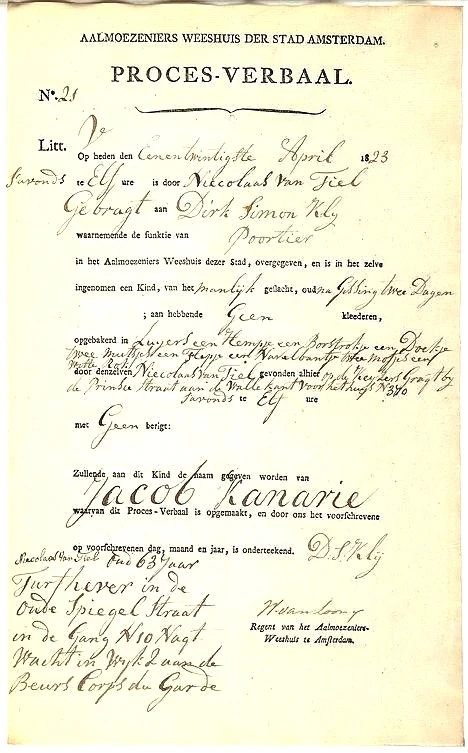 AALMOEZENIERS WEESHUIS DER STAD AMSTERDAM.
PROCES-VERBAAL.
No. 21
Litt. V
Op heden den Eenentwintigste April 1823
Savonds te Elf ure is door Niecolaas van Tiel
Gebragt aan Dirk Simon Kly
waarnemende de funktie van Poortier
in het Aalmoezeniers Weeshuis dezer Stad, overgegeven, en is in het zelve
ingenomen een Kind, van het manlyk geslacht, oud na Gissing twee Dagen
; aan hebbende Geen kleederen,
opgebakerd in Luyers een Hempje een Borstrokje een Doekje
twee mutsjes een Flepje een Navelbantje twee mofjes een
witte Rok
door denzelven Niecolaas van Tiel gevonden alhier op de Keyzers Gragt by
de Prinse Straat aan de Walle kant voor het huys N 370
Savonds te Elf ure
met Geen berigt:
Zullende aan dit Kind de naam gegeven worden van
Jacob Kanarie
waarvan dit Proces-Verbaal is opgemaakt, en door ons het voorschrevene
op voorschrevenen dag, maand en jaar, is onderteekend. D. S. Kly
Niecolaas van Tiel Oud 63 Jaar
Turfhever in de
Oude Spiegel Straat
in de Gang N 10 Nagt
Wacht in Wyk 2 aan de
Beurs Corps du Garde
W. van Loon
Regent van het Aalmoezeniers-
Weeshuis te Amsterdam.